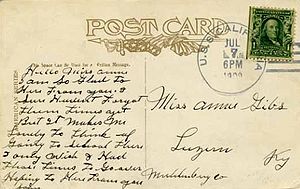 POST CARD
This Space Can Be Used for a Written Message.
U.S.S. CALIFORNIA
JUL
7
6PM
1909
Hello Miss Annie
am So Glad to
Hear From you &
Sure Havent Forgot
them times yet
but It Makes me
to think of
going to school there
I only Wish I Had
those times to Go over
Hoping to Hear From you
Miss Annie Gibs
Luzern
Ky
Muhlenberg Co